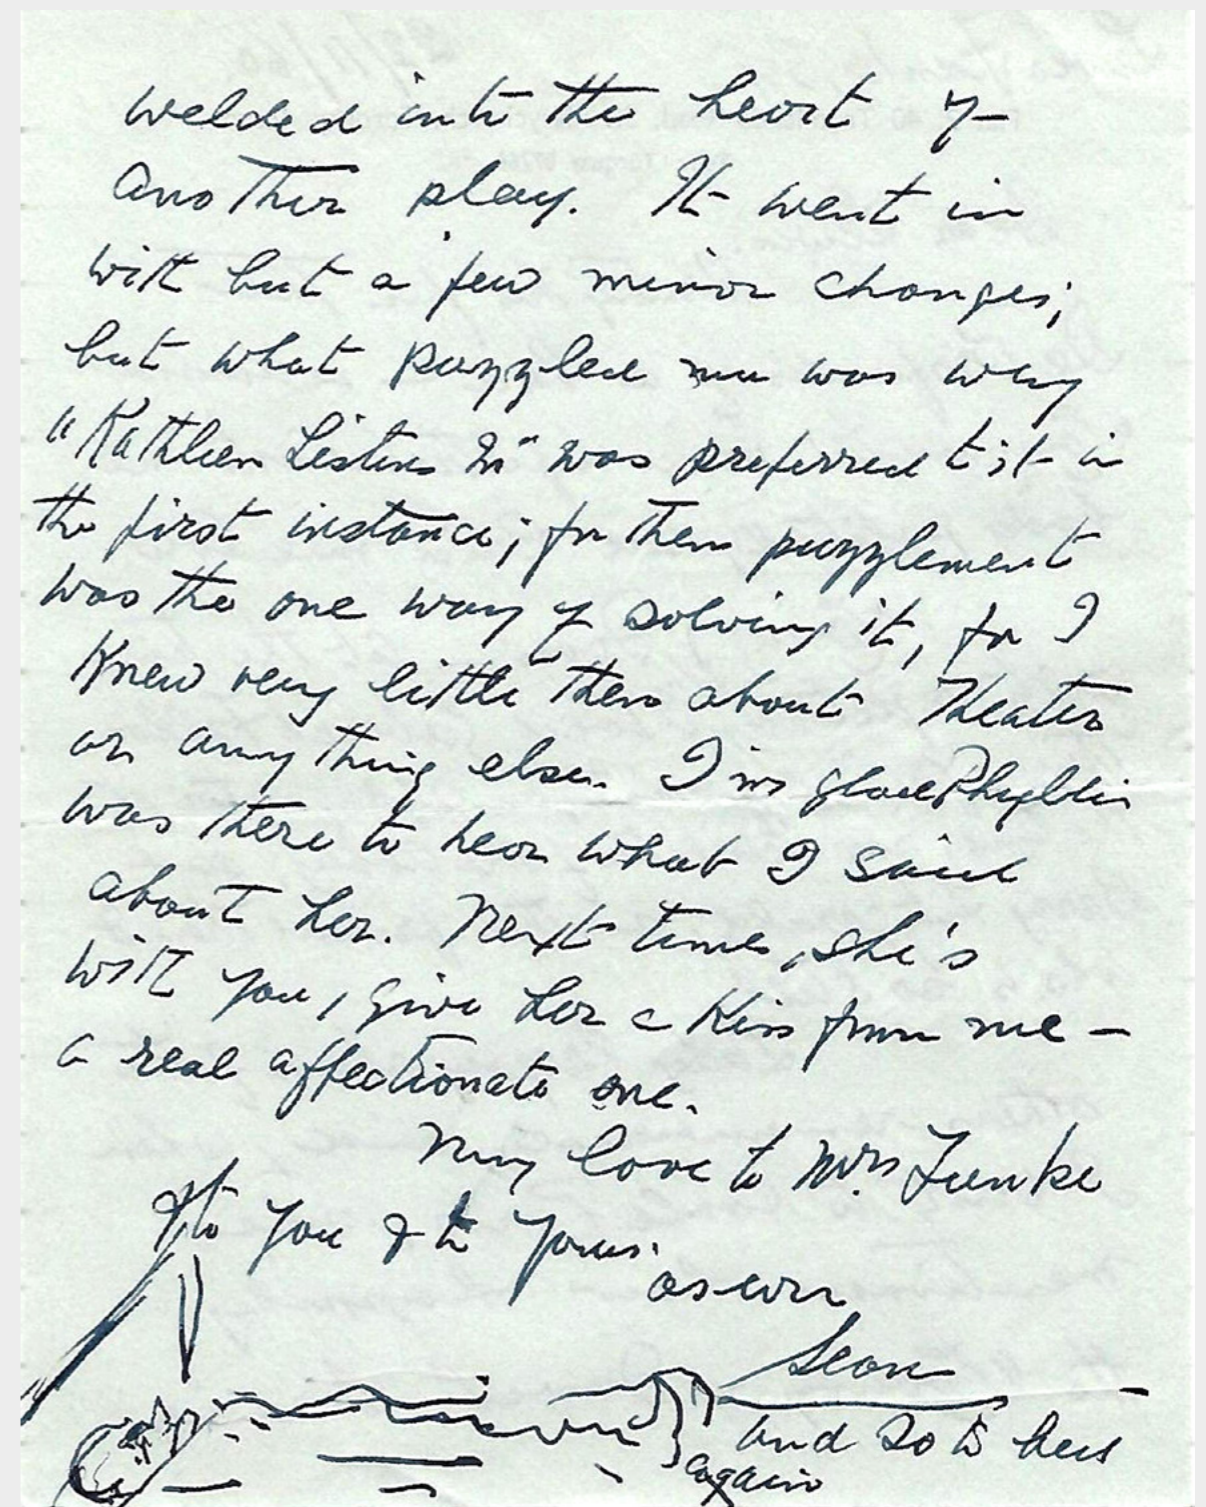 welded into the heart of
another play. It went in
with but a few minor changes;
but what puzzled me was why
"Kathleen Listens In" was preferred to it in
the first instance; for then puzzlement
was the one way of solving it, for I
knew very little then about Theater
or anything else. I'm glad Phyllis
was there to hear what I said
about her. Next time, she's
with you, give her a kiss from me –
a real affectionate one.
My love to Mrs. Funke
to you & to yours.
as ever,
Sean
and so to bed
again